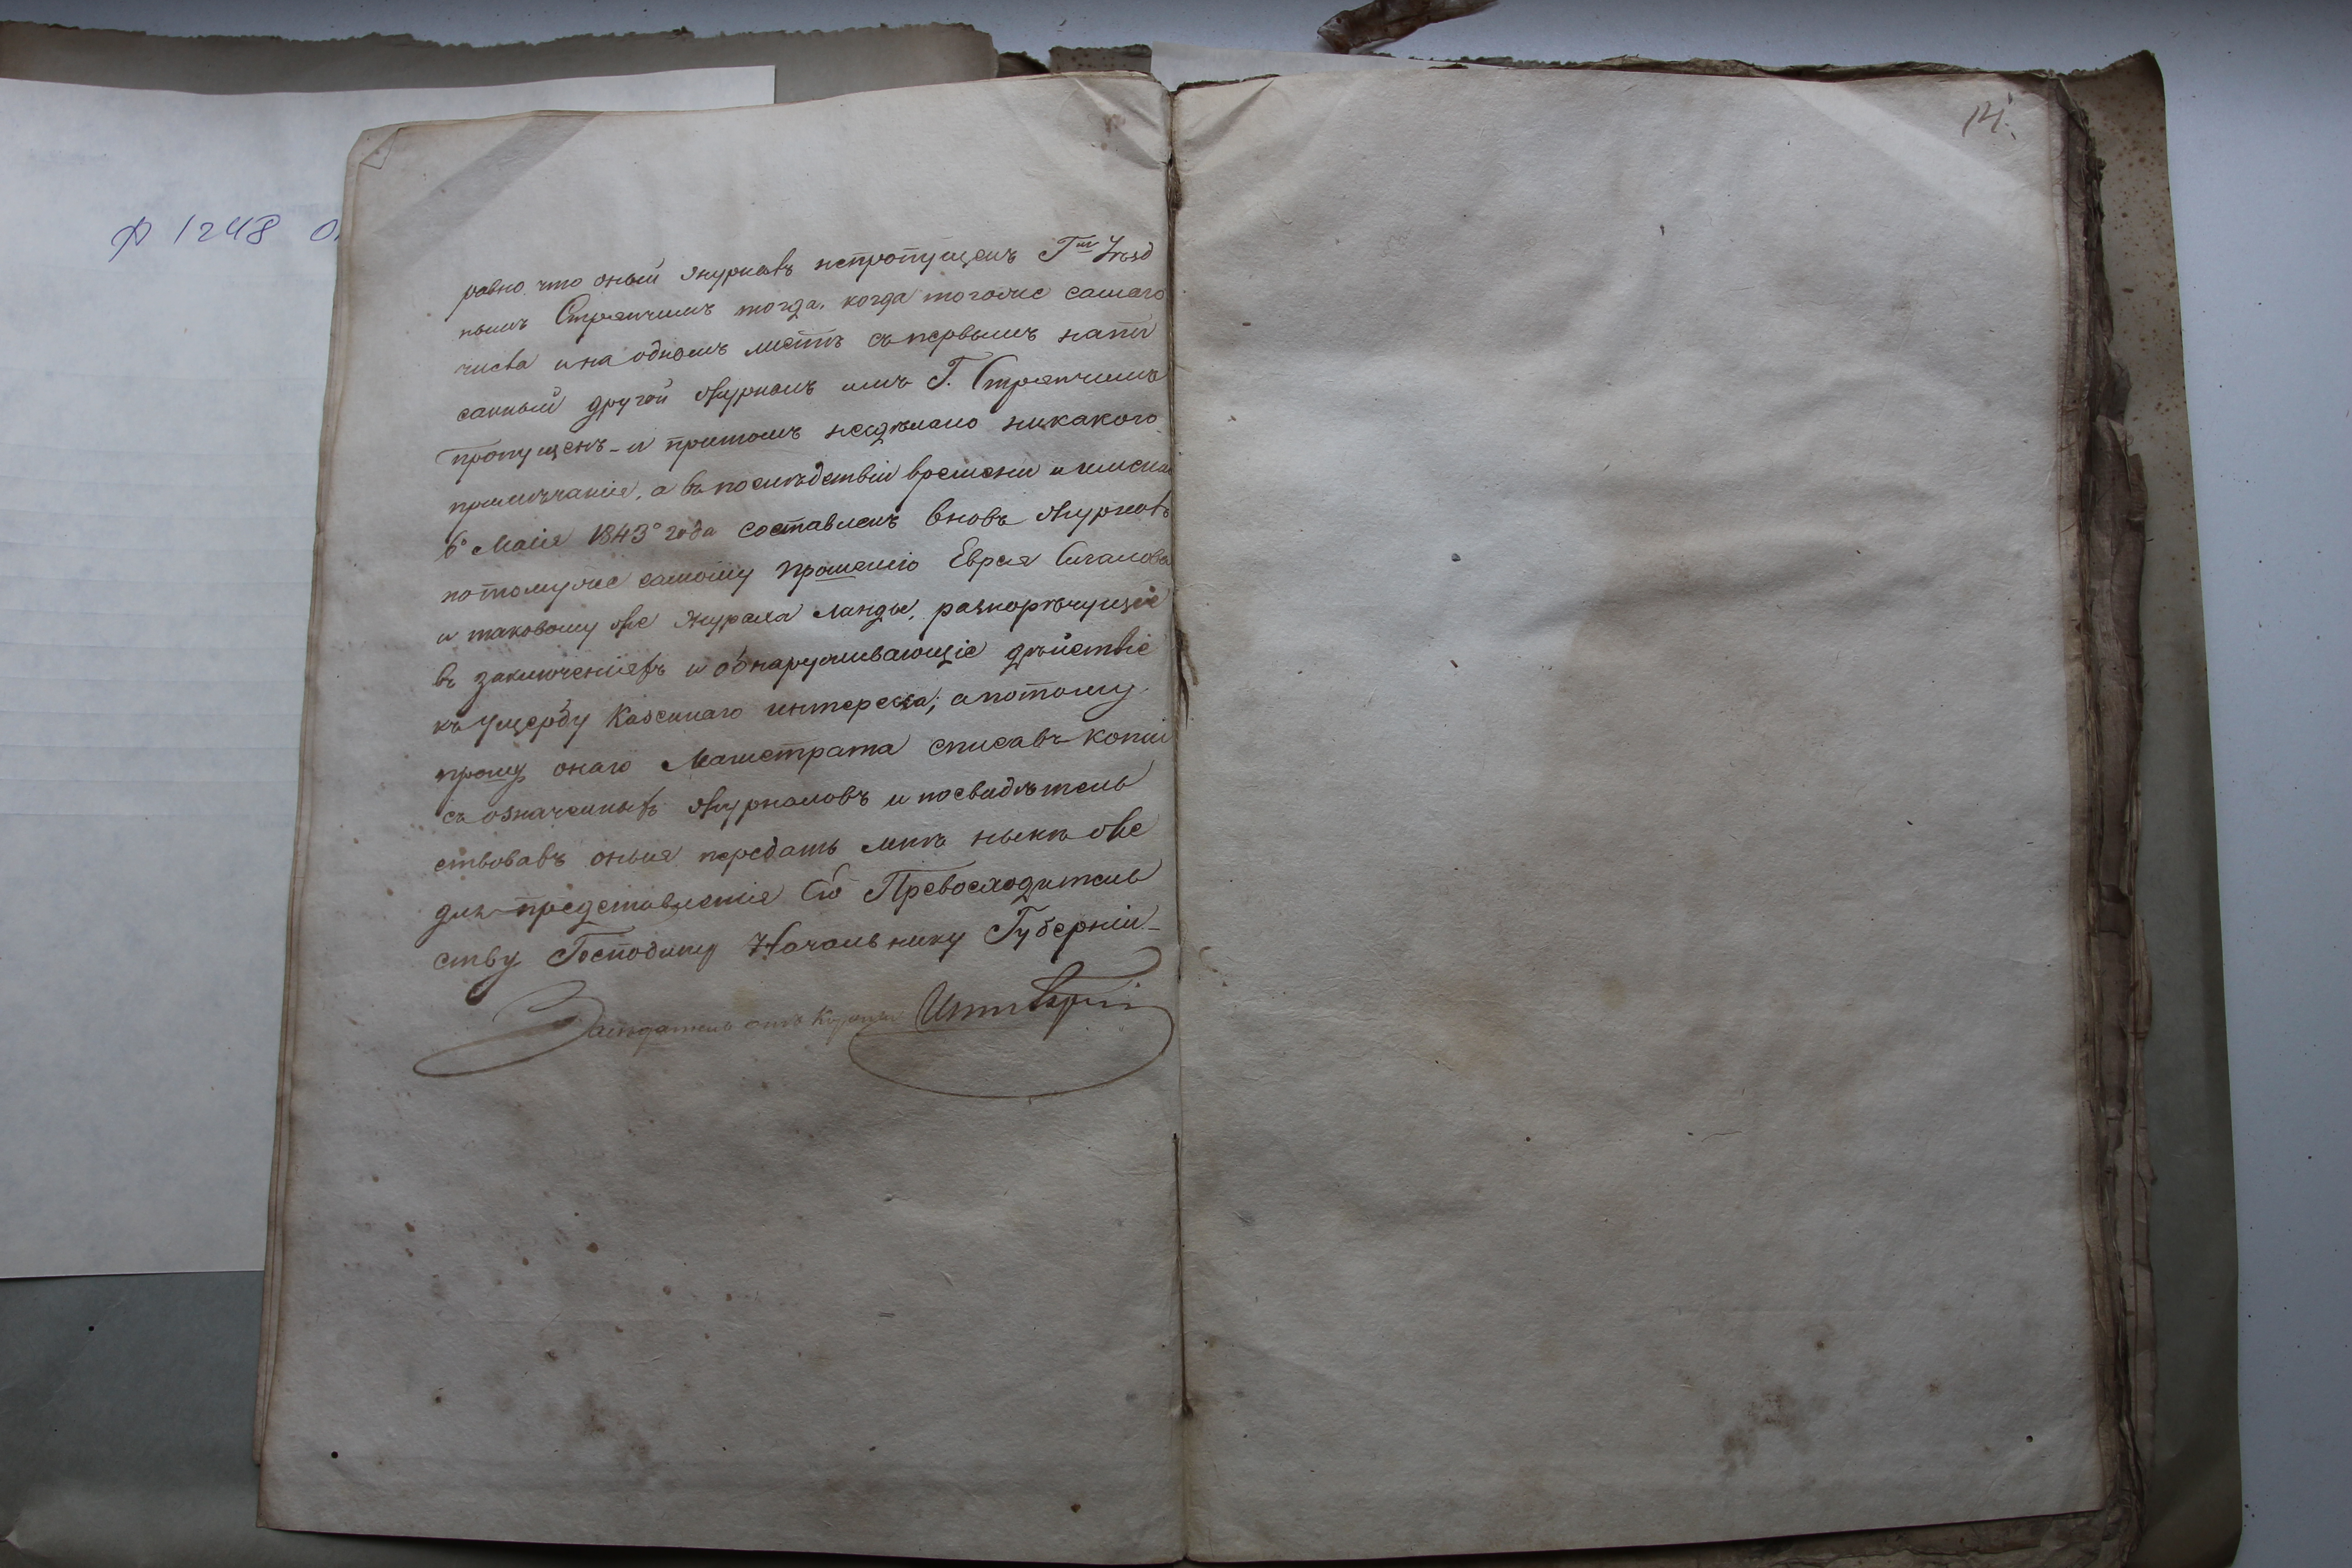 Ф 1248 О
14.
равно что оный журналъ непропущенъ Г<sup>мъ</sup> Уѣзд
нымъ Стряпчимъ тогда, когда тогоже самаго
числа и на одномъ листѣ съ первымъ напи
санный другой журналъ имъ Г. Стряпчимъ
пропущенъ и притомъ несдѣлано никакого
примѣчанія, а въ послѣдствіи времени и имено
6<sup>о</sup> Маія 1843<sup>о</sup> года составленъ вновь журналъ
потомуже самому прошенію Еврея
и таковому же Журала Ланды, разноречущіе
въ заключеніяхъ и обнаруживающіе дѣйствіе
къ ущербу Казеннаго интереса; а потому
прошу онаго Магистрата списавъ копіи
съ означенныхъ журналовъ и посвидѣтель
ствовавъ оныя передать мнѣ нынѣ же
для представленія Его Превосходитель
ству Господину Начальнику Губерніи
Засѣдатель отъ Короны